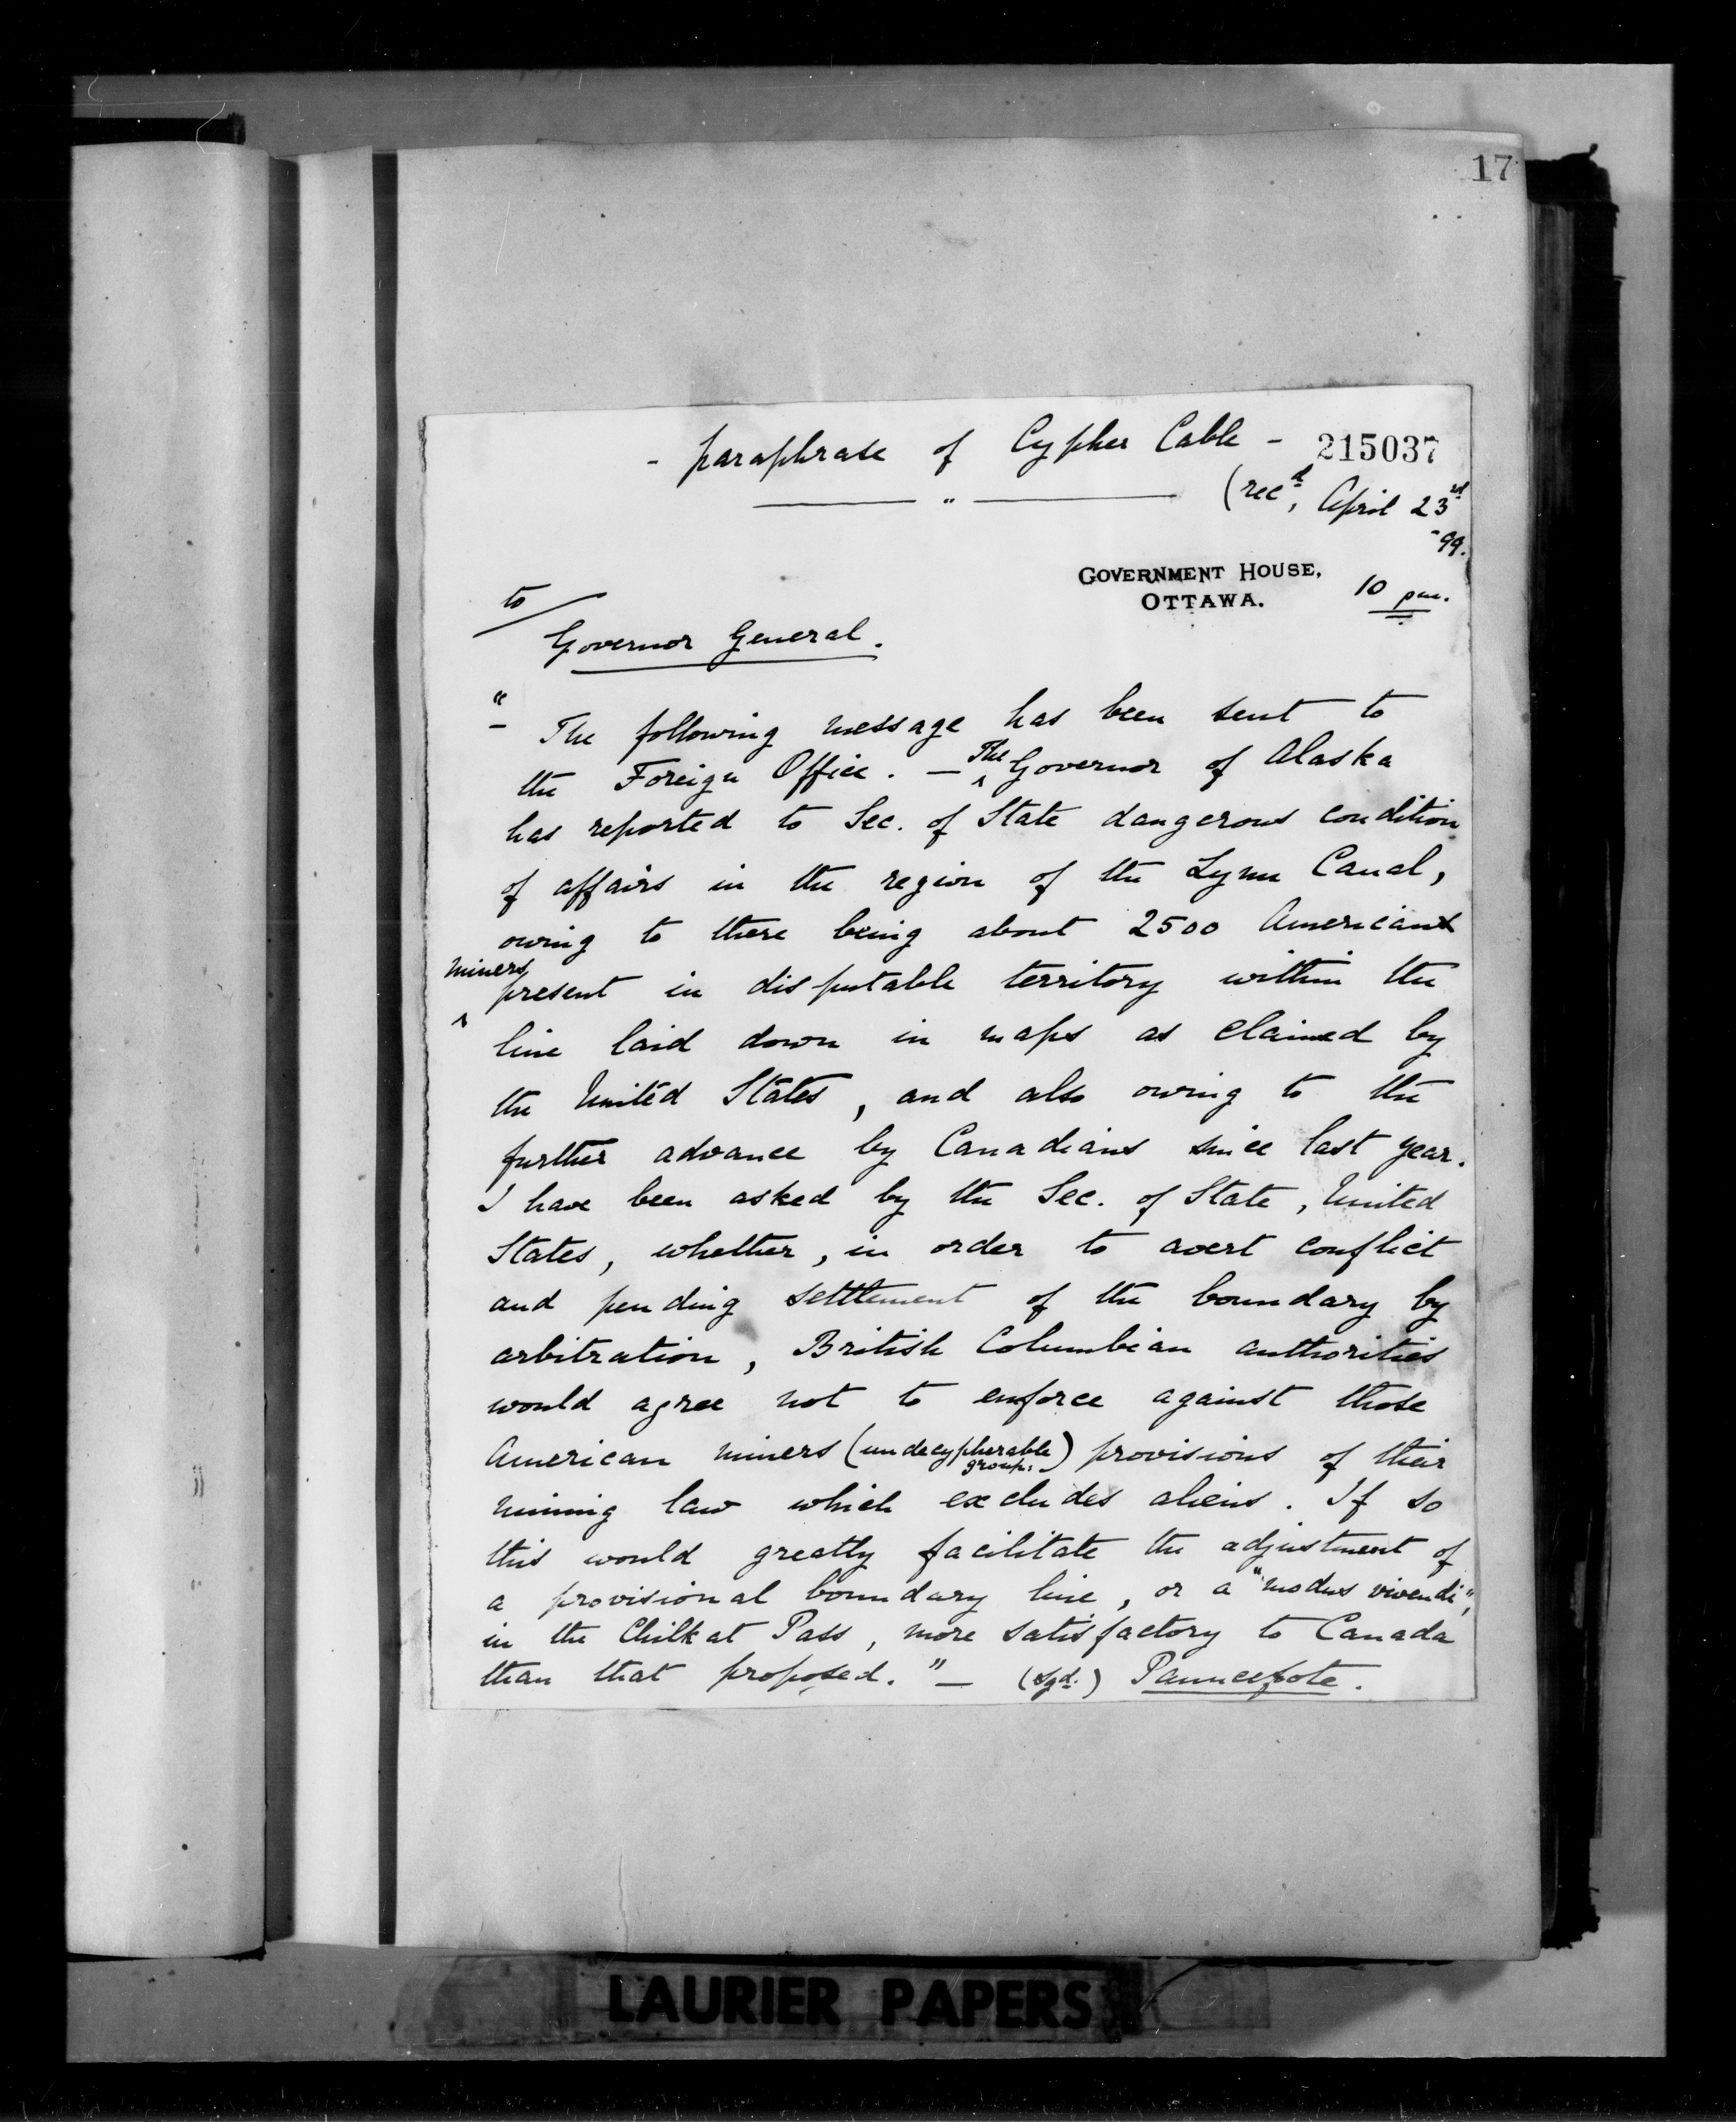 17
- paraphrase of Cypher Cable - 215037
(rec<sup>d</sup>, April 23<sup>rd</sup>
-99.
GOVERNMENT HOUSE,
OTTAWA.
10 pm.
to
Governor General.
" - The following message has been sent to
the Foreign Office. - The Governor of Alaska
has reported to Sec. of State dangerous condition
of affairs in the region of the Lynn Canal,
owing to there being about 2500 American
miners present in disputable territory within the
line laid down in maps as claimed by
the United States, and also owing to the
further advance by Canadians since last year.
I have been asked by the Sec. of State, United
States, whether, in order to avert conflict
and pending settlement of the boundary by
arbitration, British Columbian authorities
would agree not to enforce against those
American miners (undecypherable group.) provisions of their
mining law which excludes aliens. If so
this would greatly facilitate the adjustment of
a provisional boundary line, or a "modus vivendi",
in the Chilkat Pass, more satisfactory to Canada
than that proposed." - (sgd.) Pauncefote.
LAURIER PAPERS